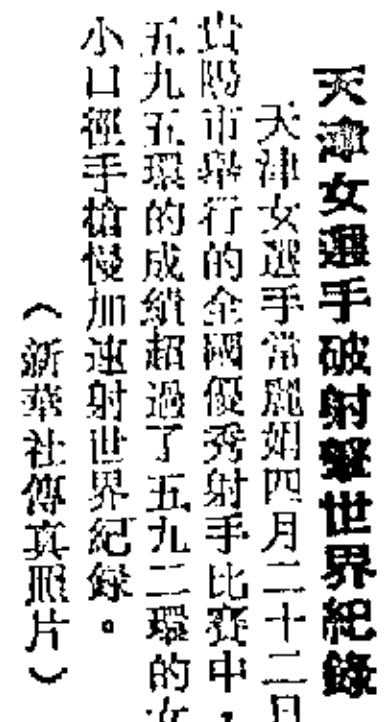 天津女選手破射擊世界紀錄
天津女選手常麗娟四月二十二日
貴陽市舉行的全國優秀射手比賽中，
五九五環的成績超過了五九二環的女
小口徑手槍慢加速射世界紀錄。
（新華社傳真照片）